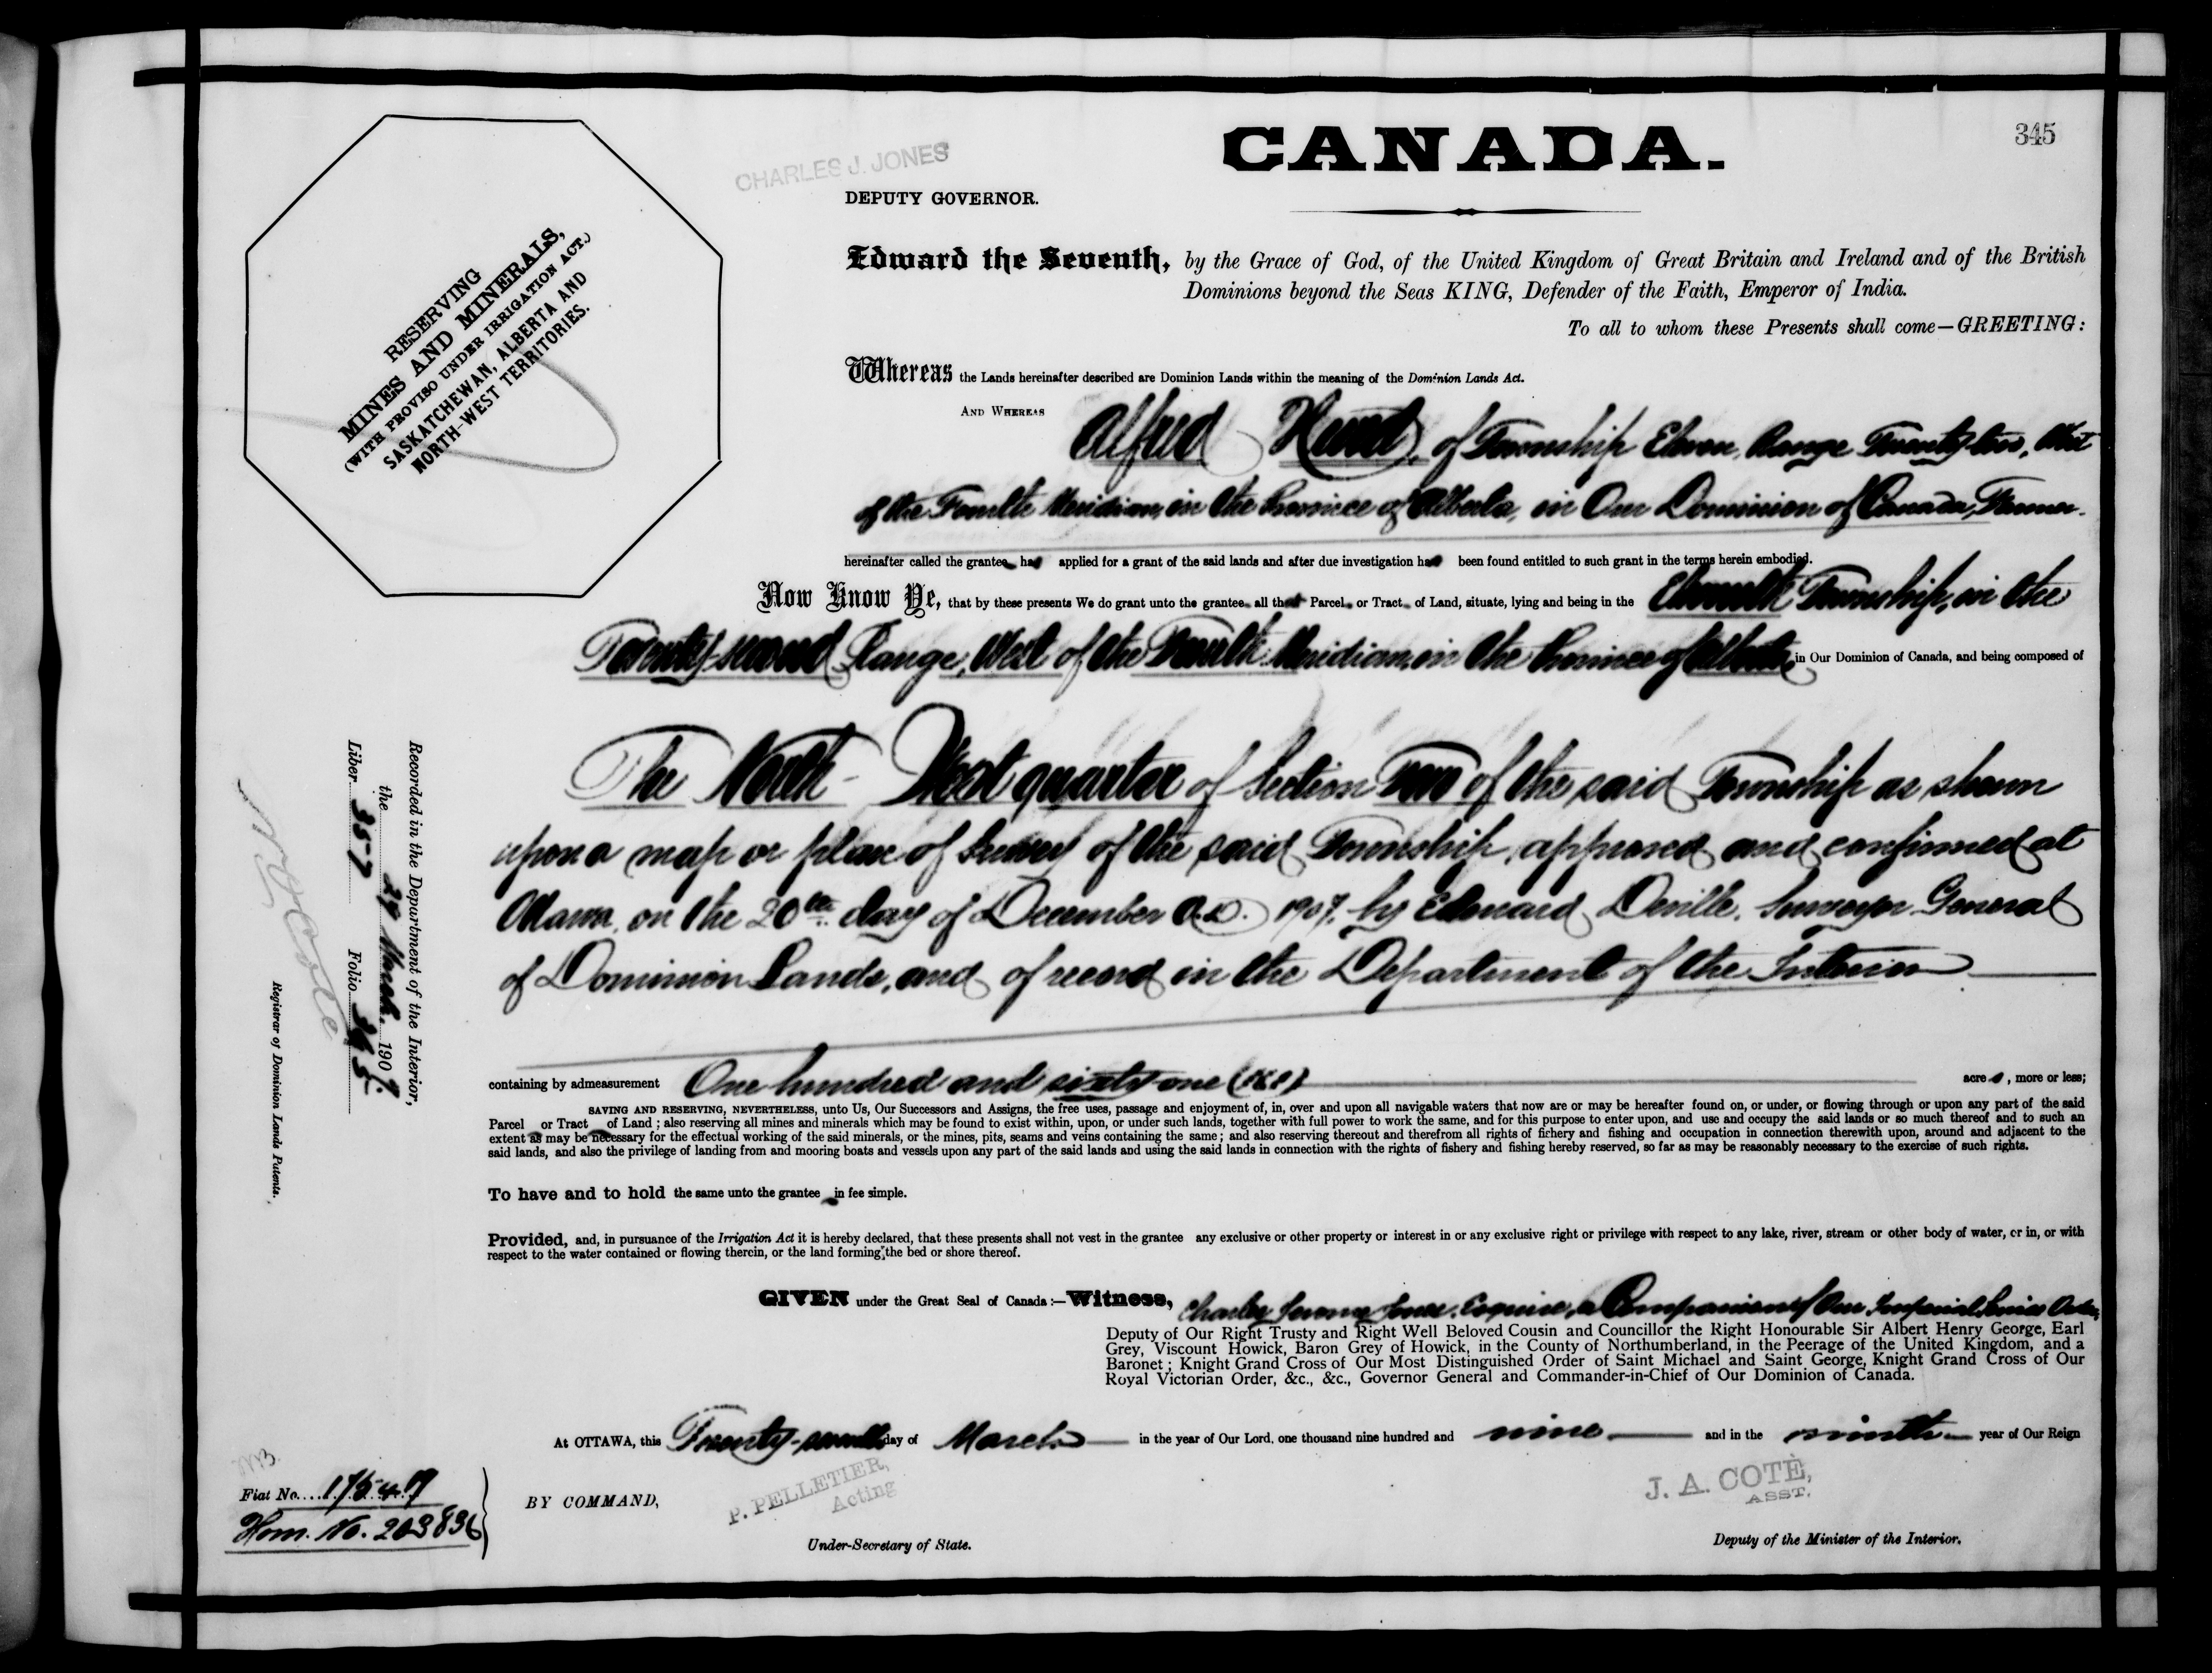 345
CANADA.
CHARLES J. JONES
DEPUTY GOVERNOR.
RESERVING
MINES AND MINERALS,
(WITH PROVISO UNDER IRRIGATION ACT.)
SASKATCHEWAN, ALBERTA AND
NORTH-WEST TERRITORIES.
Edward the Seventh, by the Grace of God, of the United Kingdom of Great Britain and Ireland and of the British
Dominions beyond the Seas KING, Defender of the Faith, Emperor of India.
To all to whom these Presents shall come—GREETING:
Whereas the Lands hereinafter described are Dominion Lands within the meaning of the Dominion Lands Act.
AND WHEREAS Alfred of Township Eleven, Range Twenty-two, West
of the Fourth Meridian, in the Province of Alberta, in Our Dominion of Canada, Farmer.
hereinafter called the grantee has applied for a grant of the said lands and after due investigation has been found entitled to such grant in the terms herein embodied.
Now Know Ye, that by these presents We do grant unto the grantee all that Parcel or Tract of Land, situate, lying and being in the Eleventh Township, in the
Twenty-second Range, West of the Fourth Meridian, in the Province of Alberta, in Our Dominion of Canada, and being composed of
The North-West quarter of Section Two of the said Township as shown
upon a map or plan of Survey of the said Township, approved and confirmed at
Ottawa, on the 20th day of December A.D. 1907, by Edouard Deville, Surveyor General
of Dominion Lands, and of record in the Department of the Interior
containing by admeasurement One hundred and sixty-one (161) acres, more or less;
SAVING AND RESERVING, NEVERTHELESS, unto Us, Our Successors and Assigns, the free uses, passage and enjoyment of, in, over and upon all navigable waters that now are or may be hereafter found on, or under, or flowing through or upon any part of the said
Parcel or Tract of Land; also reserving all mines and minerals which may be found to exist within, upon, or under such lands, together with full power to work the same, and for this purpose to enter upon, and use and occupy the said lands or so much thereof and to such an
extent as may be necessary for the effectual working of the said minerals, or the mines, pits, seams and veins containing the same; and also reserving thereout and therefrom all rights of fichery and fishing and occupation in connection therewith upon, around and adjacent to the
said lands, and also the privilege of landing from and mooring boats and vessels upon any part of the said lands and using the said lands in connection with the rights of fishery and fishing hereby reserved, so far as may be reasonably necessary to the exercise of such rights.
To have and to hold the same unto the grantee in fee simple.
Provided, and, in pursuance of the Irrigation Act it is hereby declared, that these presents shall not vest in the grantee any exclusive or other property or interest in or any exclusive right or privilege with respect to any lake, river, stream or other body of water, or in, or with
respect to the water contained or flowing therein, or the land forming the bed or shore thereof.
GIVEN under the Great Seal of Canada:—Witness, Charles Jerome Jones, Esquire, a Companion of Our Imperial Service Order,
Deputy of Our Right Trusty and Right Well Beloved Cousin and Councillor the Right Honourable Sir Albert Henry George, Earl
Grey, Viscount Howick, Baron Grey of Howick, in the County of Northumberland, in the Peerage of the United Kingdom, and a
Baronet; Knight Grand Cross of Our Most Distinguished Order of Saint Michael and Saint George, Knight Grand Cross of Our
Royal Victorian Order, &c., &c., Governor General and Commander-in-Chief of Our Dominion of Canada.
At OTTAWA, this Twenty-seventh day of March in the year of Our Lord, one thousand nine hundred and nine and in the ninth year of Our Reign
BY COMMAND,
P. PELLETIER,
Acting
Under-Secretary of State.
J. A. COTÉ,
ASST.
Deputy of the Minister of the Interior.
Recorded in the Department of the Interior,
the 29 March, 1909.
Liber 357 Folio 345.
N O Coté
Registrar of Dominion Lands Patents.
Fiat No. 17547
Hom. No. 203836